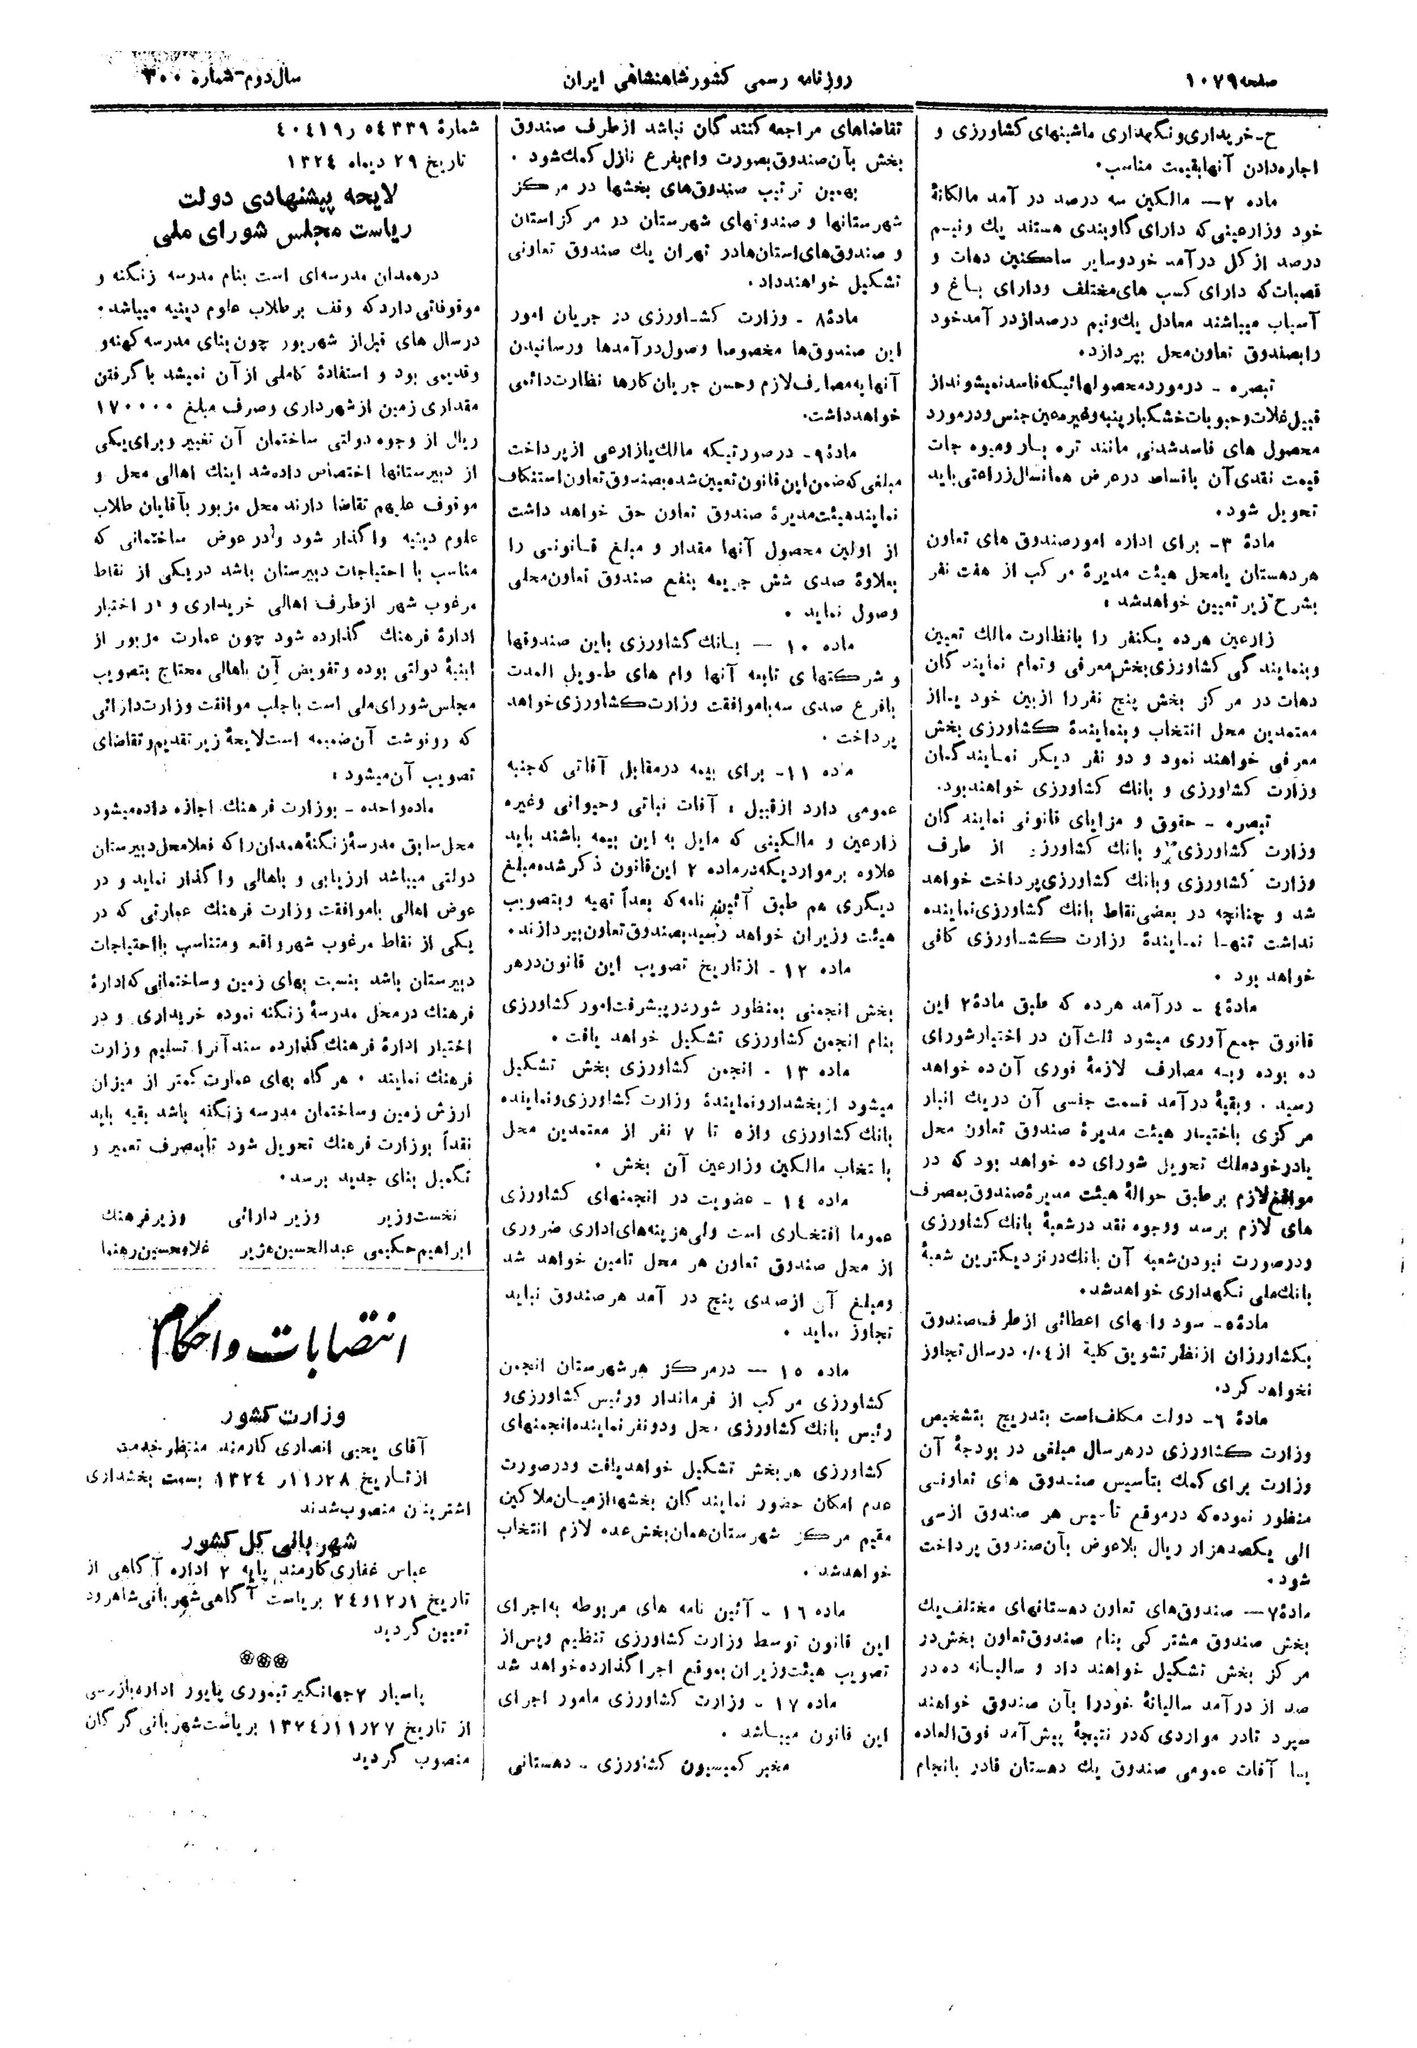 صفحه ۱۰۷۹
روزنامه رسمی کشور شاهنشاهی ایران
سال دوم - شماره ۳۰۰
ح - خریداری و نگهداری ماشینهای کشاورزی و
اجاره دادن آنها بقیمت مناسب.
ماده ۲ — مالکین سه درصد در آمد مالکانهٔ
خود وزارعینی که دارای گاوبندی هستند یك ونیم
درصد از کل درآمد خود وسایر ساکنین دهات و
قصبات که دارای کسب های مختلف ودارای باغ و
آسیاب میباشند معادل یك ونیم درصد از درآمد خود
را بصندوق تعاون محل بپردازد.
تبصره - درمورد محصولهائیکه فاسد نمیشوند از
قبیل غلات و حبوبات خشکبار پنبه وغیره عین جنس ودرمورد
محصول های فاسد شدنی مانند تره بار ومیوه جات
قیمت نقدی آن باقساط درعرض همانسال زراعتی باید
تحویل شود.
مادهٔ ۳ - برای اداره امور صندوق های تعاون
هر دهستان یا محل هیئت مدیرهٔ مرکب از هفت نفر
بشرح زیر تعیین خواهد شد :
زارعین هرده یکنفر را بانظارت مالك تعیین
وبنمایندگی کشاورزی بخش معرفی وتمام نمایندگان
دهات در مرکز بخش پنج نفر را از بین خود یا از
معتمدین محل انتخاب وبنمایندهٔ کشاورزی بخش
معرفی خواهند نمود و دو نفر دیگر نمایندگان
وزارت کشاورزی و بانك کشاورزی خواهند بود.
تبصره - حقوق و مزایای قانونی نمایندگان
وزارت کشاورزی و بانك کشاورزی از طرف
وزارت کشاورزی وبانك کشاورزی پرداخت خواهد
شد و چنانچه در بعضی نقاط بانك کشاورزی نماینده
نداشت تنها نمایندهٔ وزارت کشاورزی کافی
خواهد بود .
مادهٔ ٤ - درآمد هرده که طبق مادهٔ ۲ این
قانون جمع آوری میشود ثلث آن در اختیار شورای
ده بوده وبه مصارف لازمهٔ فوری آن ده خواهد
رسید . وبقیهٔ درآمد قسمت جنسی آن دریك انبار
مرکزی باختیار هیئت مدیرهٔ صندوق تعاون محل
یا در خود ملك تحویل شورای ده خواهد بود که در
مواقع لازم برطبق حوالهٔ هیئت مدیرهٔ صندوق بمصرف
های لازم برسد ووجوه نقد درشعبهٔ بانك کشاورزی
ودرصورت نبودن شعبه آن بانك در نزدیکترین شعبهٔ
بانك ملی نگهداری خواهد شد.
مادهٔ ٥ - سود وامهای اعطائی از طرف صندوق
بکشاورزان از نظر تشویق کلیة از ۰/۰٤ در سال تجاوز
نخواهد کرد.
مادهٔ ٦ - دولت مکلف است بتدریج بتشخیص
وزارت کشاورزی درهرسال مبلغی در بودجهٔ آن
وزارت برای کمك بتأسیس صندوق های تعاونی
منظور نموده که درموقع تأسیس هر صندوق از سی
الی یکصدهزار ریال بلاعوض بآن صندوق پرداخت
شود.
مادهٔ ۷ — صندوق های تعاون دهستانهای مختلف یك
بخش صندوق مشترکی بنام صندوق تعاون بخش در
مرکز بخش تشکیل خواهند داد و سالیانه ده در
صد از درآمد سالیانهٔ خودرا بآن صندوق خواهند
سپرد تادر مواردی که در نتیجهٔ پیش آمد فوق العاده
یا آفات عمومی صندوق یك دهستان قادر بانجام
تقاضاهای مراجعه کنندگان نباشد از طرف صندوق
بخش بآن صندوق بصورت وام بفرع نازل کمك شود .
بهمین ترتیب صندوق های بخشها در مرکز
شهرستانها و صندوقهای شهرستان در مرکز استان
و صندوق های استان ها در تهران یك صندوق تعاونی
تشکیل خواهند داد.
مادهٔ ۸ - وزارت کشاورزی در جریان امور
این صندوق ها مخصوصا وصول درآمدها ورسانیدن
آنها به مصارف لازم وحسن جریان کارها نظارت دائمی
خواهد داشت.
مادهٔ ۹ - درصورتیکه مالك یا زارعی از پرداخت
مبلغی که ضمن این قانون تعیین شده بصندوق تعاون استنکاف
نمایند هیئت مدیرهٔ صندوق تعاون حق خواهد داشت
از اولین محصول آنها مقدار و مبلغ قانونی را
بعلاوهٔ صدی شش جریمه بنفع صندوق تعاون محلی
وصول نماید .
ماده ۱۰ — بانك کشاورزی باین صندوقها
و شرکتهای تابعه آنها وام های طویل المدت
بافرع صدی سه باموافقت وزارت کشاورزی خواهد
پرداخت .
ماده ۱۱ - برای بیمه درمقابل آفاتی که جنبه
عمومی دارد از قبیل : آفات نباتی وحیوانی وغیره
زارعین و مالکینی که مایل به این بیمه باشند باید
علاوه بر مواردیکه درماده ۲ این قانون ذکر شده مبلغ
دیگری هم طبق آئین نامه که بعداً تهیه وبتصویب
هیئت وزیران خواهد رسید بصندوق تعاون بپردازند.
ماده ۱۲ - از تاریخ تصویب این قانون درهر
بخش انجمنی بمنظور شور در پیشرفت امور کشاورزی
بنام انجمن کشاورزی تشکیل خواهد یافت .
ماده ۱۳ - انجمن کشاورزی بخش تشکیل
میشود از بخشدار و نمایندهٔ وزارت کشاورزی ونماینده
بانك کشاورزی واز ٥ تا ۷ نفر از معتمدین محل
بانتخاب مالکین وزارعین آن بخش .
ماده ١٤ - عضویت در انجمنهای کشاورزی
عموما افتخاری است ولی هزینه های اداری ضروری
از محل صندوق تعاون هر محل تامین خواهد شد
ومبلغ آن از صدی پنج در آمد هرصندوق نباید
تجاوز نماید .
ماده ۱٥ — درمرکز هرشهرستان انجمن
کشاورزی مرکب از فرماندار ورئیس کشاورزی و
رئیس بانك کشاورزی محل ودونفر نماینده انجمنهای
کشاورزی هربخش تشکیل خواهد یافت ودرصورت
عدم امکان حضور نمایندگان بخشها از میان ملاکین
مقیم مرکز شهرستان همان بخش عده لازم انتخاب
خواهد شد.
ماده ۱٦ - آئین نامه های مربوطه به اجرای
این قانون توسط وزارت کشاورزی تنظیم وپس از
تصویب هیئت وزیران بموقع اجرا گذارده خواهد شد
ماده ۱۷ - وزارت کشاورزی مامور اجرای
این قانون میباشد .
مخبر کمیسیون کشاورزی - دهستانی
شمارهٔ ٥٤۳۳۹ ر ٤۰٤۱۹
تاریخ ۲۹ دیماه ۱۳۲٤
لایحه پیشنهادی دولت
ریاست مجلس شورای ملی
درهمدان مدرسه ای است بنام مدرسه زنگنه و
موقوفاتی دارد که وقف بر طلاب علوم دینیه میباشد .
درسال های قبل از شهریور چون بنای مدرسه کهنه و
وقدیمی بود و استفادهٔ کاملی از آن نمیشد با گرفتن
مقداری زمین از شهرداری وصرف مبلغ ۱۷۰۰۰۰
ریال از وجوه دولتی ساختمان آن تغییر وبرای یکی
از دبیرستانها اختصاص داده شد اینك اهالی محل و
موقوف علیهم تقاضا دارند محل مزبور بآقایان طلاب
علوم دینیه واگذار شود ودر عوض ساختمانی که
مناسب با احتیاجات دبیرستان باشد دریکی از نقاط
مرغوب شهر از طرف اهالی خریداری و در اختیار
ادارهٔ فرهنك گذارده شود چون عمارت مزبور از
ابنیهٔ دولتی بوده وتفویض آن باهالی محتاج بتصویب
مجلس شورای ملی است باجلب موافقت وزارت دارائی
که رونوشت آن ضمیمه است لایحهٔ زیر تقدیم وتقاضای
تصویب آن میشود :
ماده واحده - بوزارت فرهنك اجازه داده میشود
محل سابق مدرسهٔ زنگنهٔ همدان را که فعلا محل دبیرستان
دولتی میباشد ارزیابی و باهالی واگذار نماید و در
عوض اهالی باموافقت وزارت فرهنك عمارتی که در
یکی از نقاط مرغوب شهر واقع ومتناسب بااحتیاجات
دبیرستان باشد بنسبت بهای زمین وساختمانی که ادارهٔ
فرهنك در محل مدرسهٔ زنگنه نموده خریداری و در
اختیار ادارهٔ فرهنك گذارده سند آنرا تسلیم وزارت
فرهنك نمایند . هرگاه بهای عمارت کمتر از میزان
ارزش زمین وساختمان مدرسه زنگنه باشد بقیه باید
نقداً بوزارت فرهنك تحویل شود تابمصرف تعمیر و
تکمیل بنای جدید برسد.
نخست وزیر وزیر دارائی وزیر فرهنك
ابراهیم حکیمی عبدالحسین هژیر غلامحسین رهنما
انتصابات و احکام
وزارت کشور
آقای یحیی انصاری کارمند منتظر خدمت
از تاریخ ۲۸ر۱۱ر ۱۳۲٤ بسمت بخشداری
اشترینان منصوب شدند
شهربانی کل کشور
عباس غفاری کارمند پایه ۲ اداره آگاهی از
تاریخ ۱ر۱۲ر۲٤ بریاست آگاهی شهربانی شاهرود
تعیین گردید
پاسیار ۲ جهانگیر تیموری پایور اداره بازرسی
از تاریخ ۲۷ر۱۱ر۱۳۲٤ بریاست شهربانی گرگان
منصوب گردید